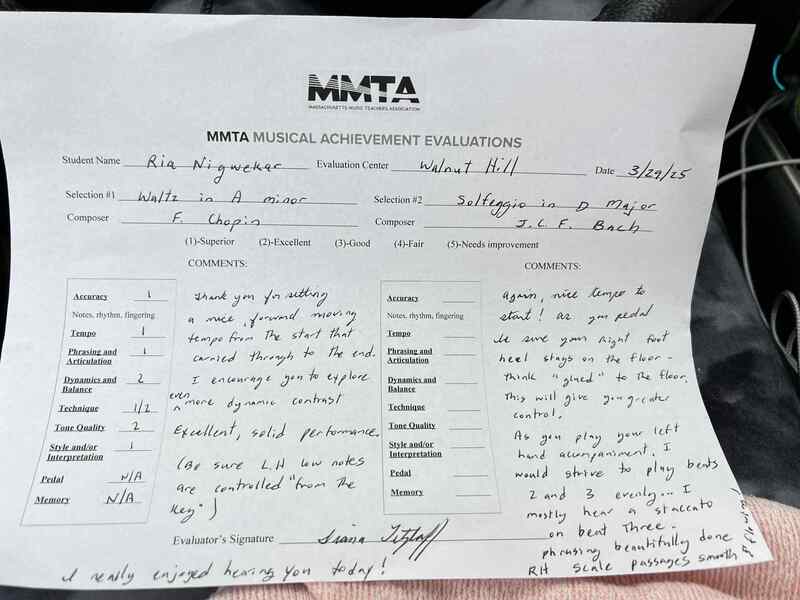 MMTA
MASSACHUSETTS MUSIC TEACHERS ASSOCIATION
MMTA MUSICAL ACHIEVEMENT EVALUATIONS
Student Name Ria Nigwekar Evaluation Center Walnut Hill Date 3/29/25
Selection #1 Waltz in A minor Selection #2 Solfeggio in D Major
Composer F. Chopin Composer J.C.F. Bach
(1)-Superior (2)-Excellent (3)-Good (4)-Fair (5)-Needs improvement
COMMENTS:
Accuracy 1
Notes, rhythm, fingering
Tempo 1
Phrasing and
Articulation 1
Dynamics and
Balance 2
Technique 1/2
Tone Quality 2
Style and/or
Interpretation 1
Pedal N/A
Memory N/A
Thank you for setting
a nice, forward moving
tempo from the start that
carried through to the end.
I encourage you to explore
even more dynamic contrast
Excellent, solid performance.
(Be sure L.H low notes
are controlled "from the
key")
COMMENTS:
Accuracy
Notes, rhythm, fingering
Tempo
Phrasing and
Articulation
Dynamics and
Balance
Technique
Tone Quality
Style and/or
Interpretation
Pedal
Memory
Again, nice tempo to
start! As you pedal
be sure your right foot
heel stays on the floor -
think "glued" to the floor.
This will give you greater
control.
As you play your left
hand accompaniment, I
would strive to play beats
2 and 3 evenly... I
mostly hear a staccato
on beat three.
phrasing beautifully done
RH scale passages smooth & flowing!
Evaluator's Signature
I really enjoyed hearing you today!